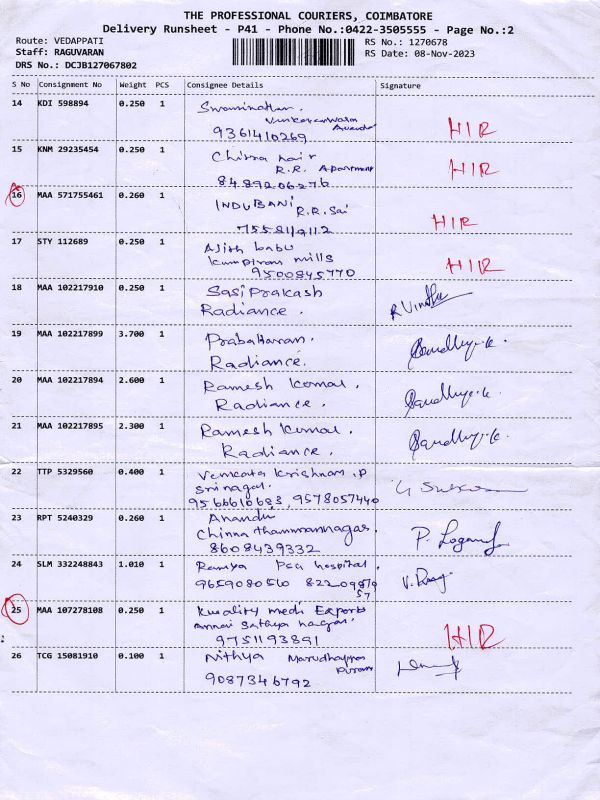 THE PROFESSIONAL COURIERS, COIMBATORE
Delivery Runsheet - P41 - Phone No.:0422-3505555 - Page No.:2
Route: VEDAPPATI RS No.: 1270678
Staff: RAGUVARAN RS Date: 08-Nov-2023
DRS No.: DCJB127067802
S No Consignment No Weight PCS Consignee Details Signature
14 KDI 598894 0.250 1 Swaminathan.
9361410269 HIR
15 KNM 29235454 0.250 1 Chinna nair
R.R. Apartment HIR
8489206276
16 MAA 571755461 0.260 1 INDUBANI
R.R. Sai
7558119112 HIR
17 STY 112689 0.250 1 Ajith babu
mills HIR
9500845770
18 MAA 102217910 0.250 1 Sasi Prakash
Radiance.
19 MAA 102217899 3.700 1 Prabaharan.
Radiance.
20 MAA 102217894 2.600 1 Ramesh Komal.
Radiance.
21 MAA 102217895 2.300 1 Ramesh Komal.
Radiance.
22 TTP 5329560 0.400 1 Venkata Krishnan .P
Srinagar.
9566610683, 9578057440
23 RPT 5240329 0.260 1 Anandu
Chinna thammannagar.
8608439332
24 SLM 332248843 1.010 1 Ramya PSG hospital.
9659080510
25 MAA 107278108 0.250 1 Kwality medi Exports
Annai Sathya nagar.
9751193891 HIR
26 TCG 15081910 0.100 1 Nithya
9087346792